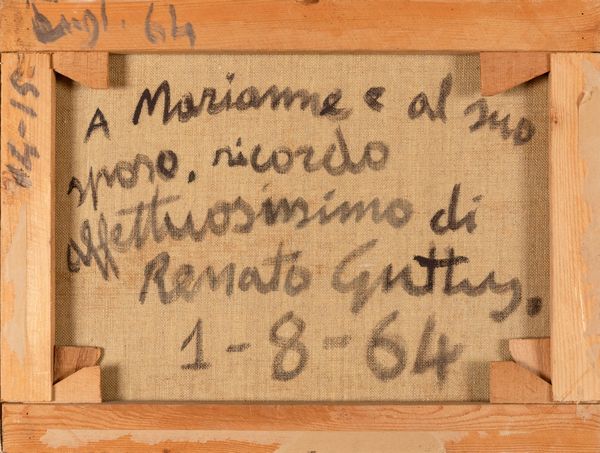 64
A Marianne e al suo
sposo, ricordo
affettuosissimo di
Renato Guttuso.
1-8-64